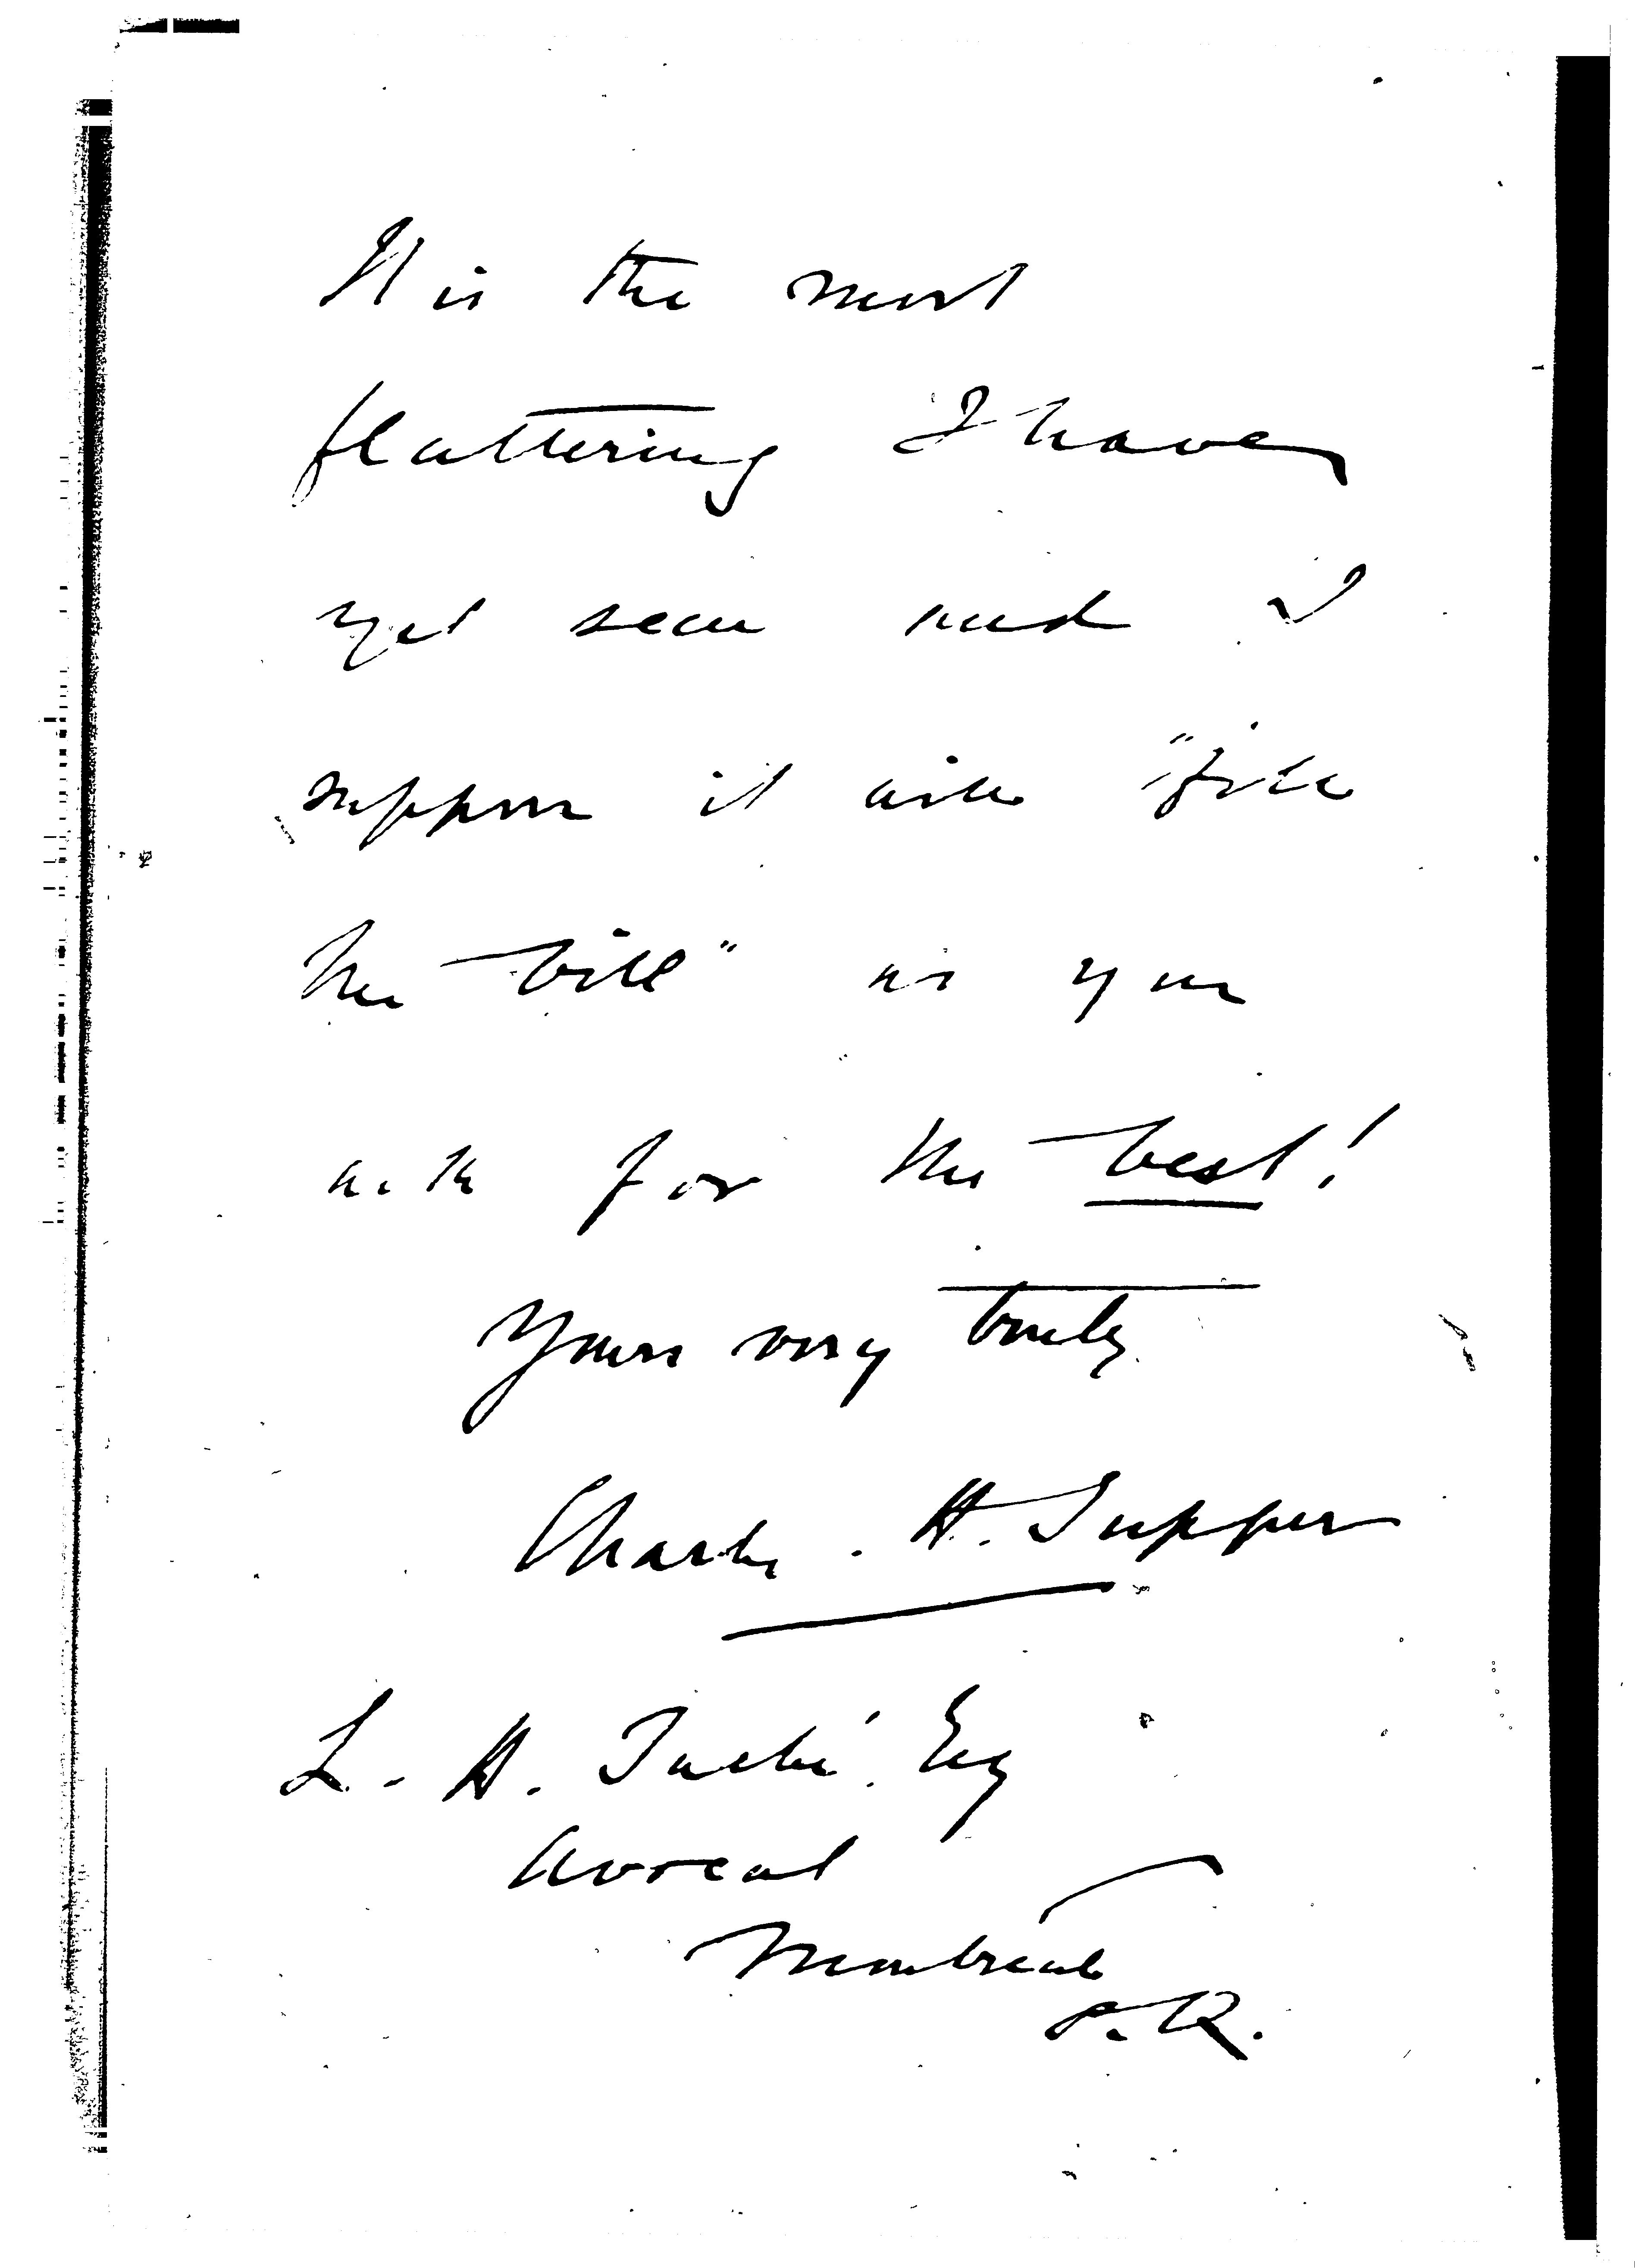 It is the most
flattering I have
yet seen and I
suppose it will "fill
the bill" as you
ask for the best!
Yours very truly
Charles H. Tupper
L. H. Taché. Esq
Avocat
Montreal
P. Q.